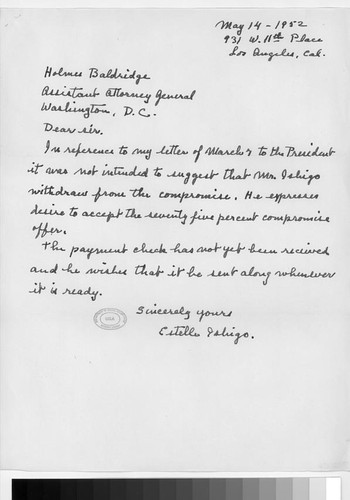 May 14 - 1952
931 W. 11th Place
Los Angeles, Cal.
Holmes Baldridge
Assistant Attorney General
Washington, D.C.
Dear sir.
In reference to my letter of March 7 to the President
it was not intended to suggest that Mr. Ishigo
withdraw from the compromise. He expresses
desire to accept the seventy five percent compromise
offer.
The payment check has not yet been recieved
and he wishes that it be sent along whenever
it is ready.
Sincerely yours
Estelle Ishigo.